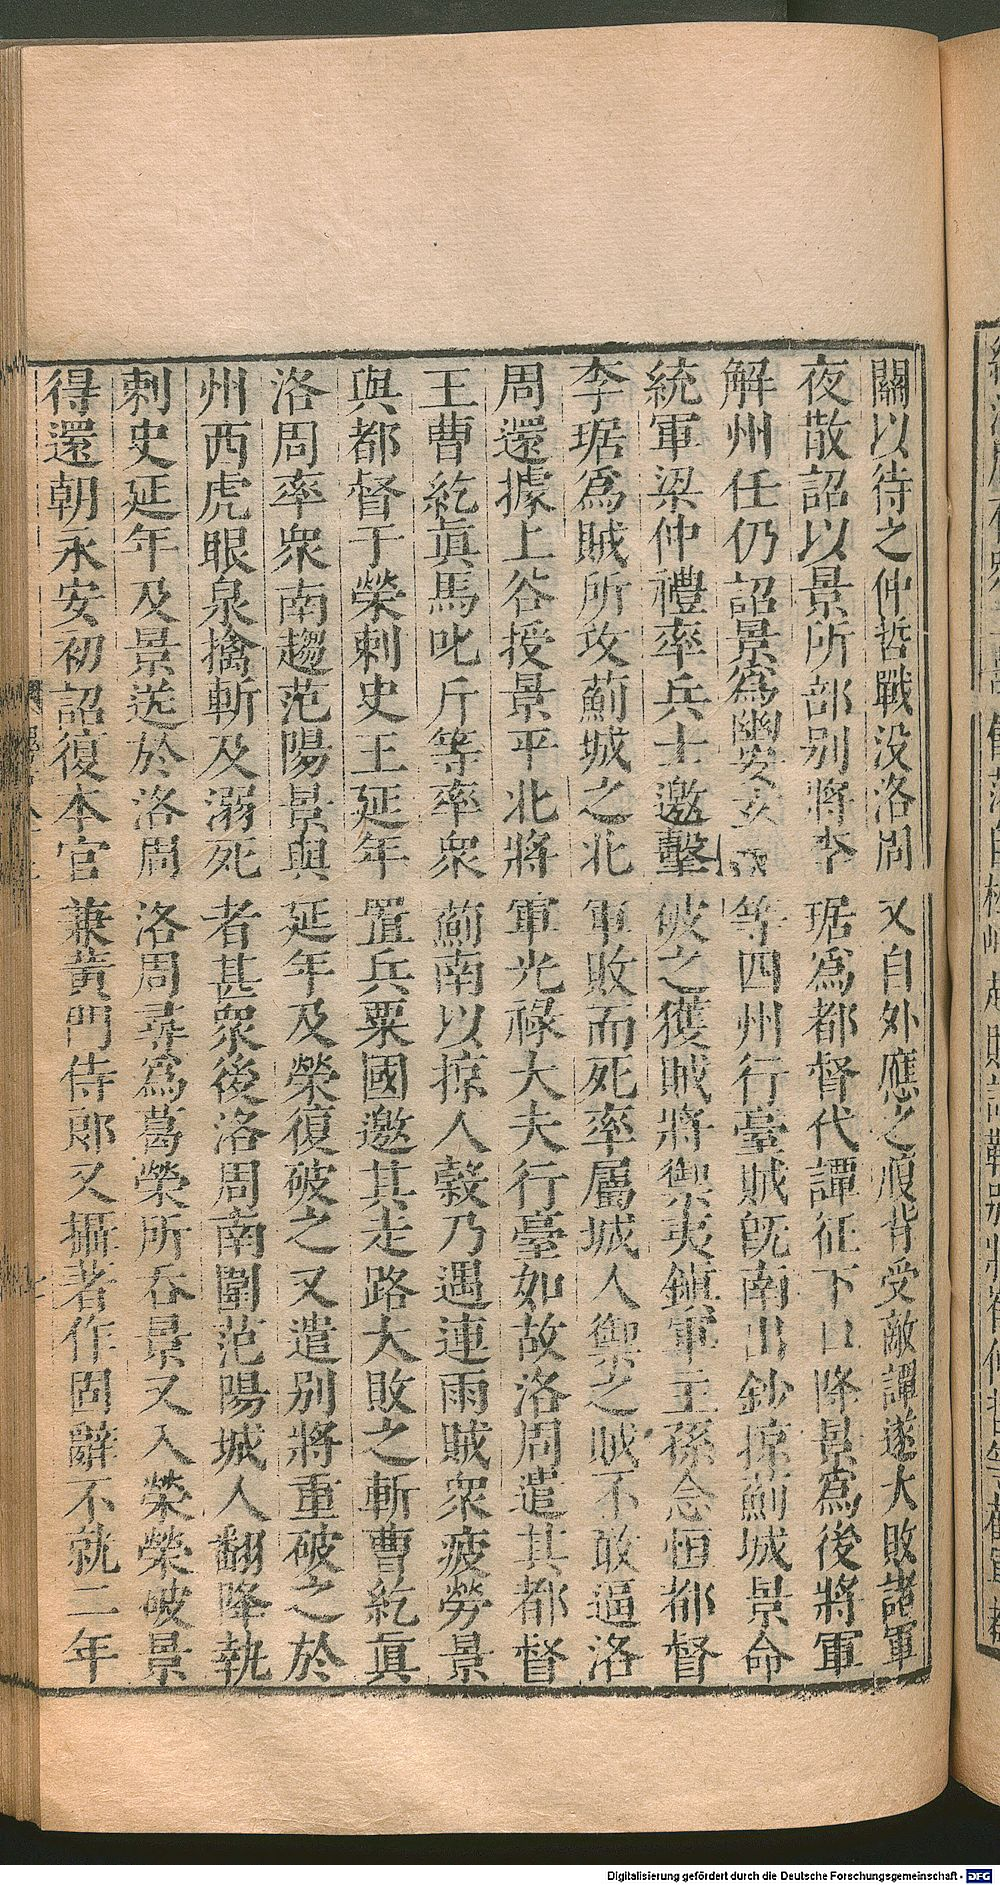 關以待之仲哲戰没洛周又自外應之腹背受敵譚遂大敗諸軍
夜散詔以景所部别將李琚爲都督代譚征下口降景爲後將軍
解州任仍詔景爲幽安玄 等四州行臺賊旣南出鈔掠薊城景命
統軍梁仲禮率兵士邀擊破之獲賊將禦夷鎮軍主孫念恒都督
李琚爲賊所攻薊城之北軍敗而死率屬城人禦之賊不敢逼洛
周還據上谷授景平北將軍光禄大夫行臺如故洛周遣其都督
王曹紇眞馬叱斤等率衆薊南以掠人穀乃遇連雨賊衆疲勞景
與都督于榮刺史王延年置兵粟國邀其走路大敗之斬曹紇眞
洛周率衆南趨范陽景與延年及榮復破之又遣别將重破之於
州西虎眼泉擒斬及溺死者甚衆後洛周南圍范陽城人翻降執
刺史延年及景送於洛周洛周尋爲葛榮所吞景又入榮榮破景
得還朝永安初詔復本官兼黃門侍郎又攝著作固辭不就二年
Digitalisierung gefördert durch die Deutsche Forschungsgemeinschaft - DFG